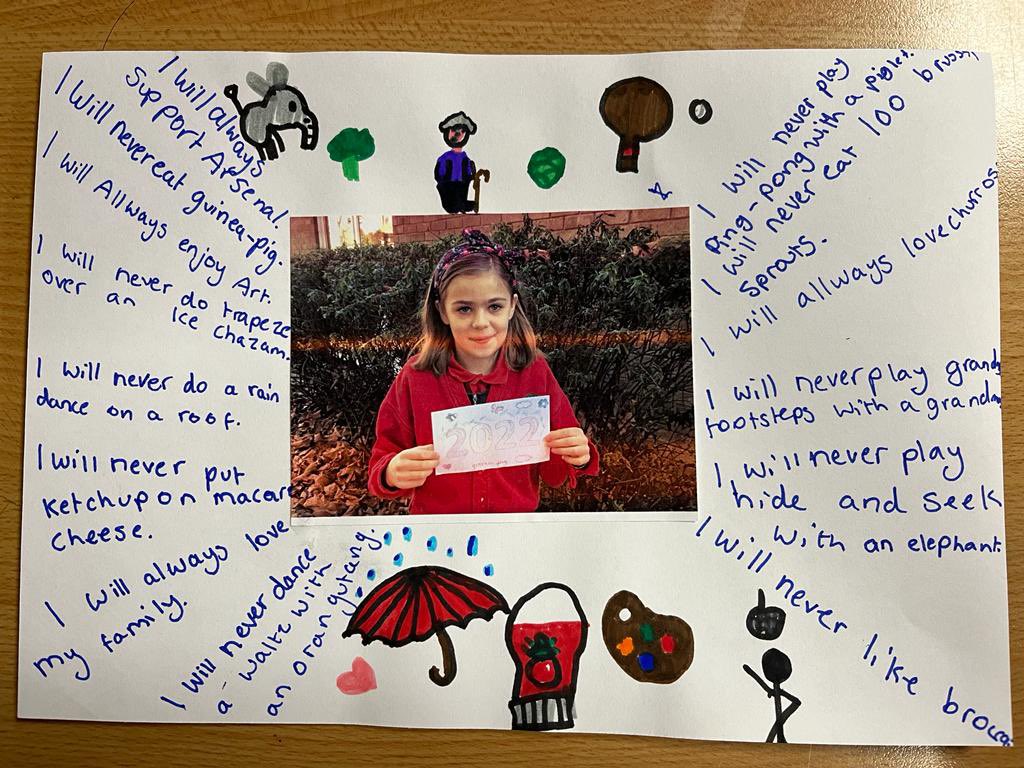 I will always
Support Arsenal.
I Will never eat guinea-pig.
I will Allways enjoy Art.
I will never do trapeze
over an Ice chazam.
I will never do a rain
dance on a roof.
I will never put
ketchup on macaro
cheese.
I will always love
my family.
I will never dance
a waltz with
an orangutang.
2022
I will never play
Ping-pong with a piglet.
I will never eat 100 brussl
Sprouts.
I will allways love churros
I will never play grand
footsteps with a grandm
I will never play
hide and seek
with an elephant.
I will never like brocco